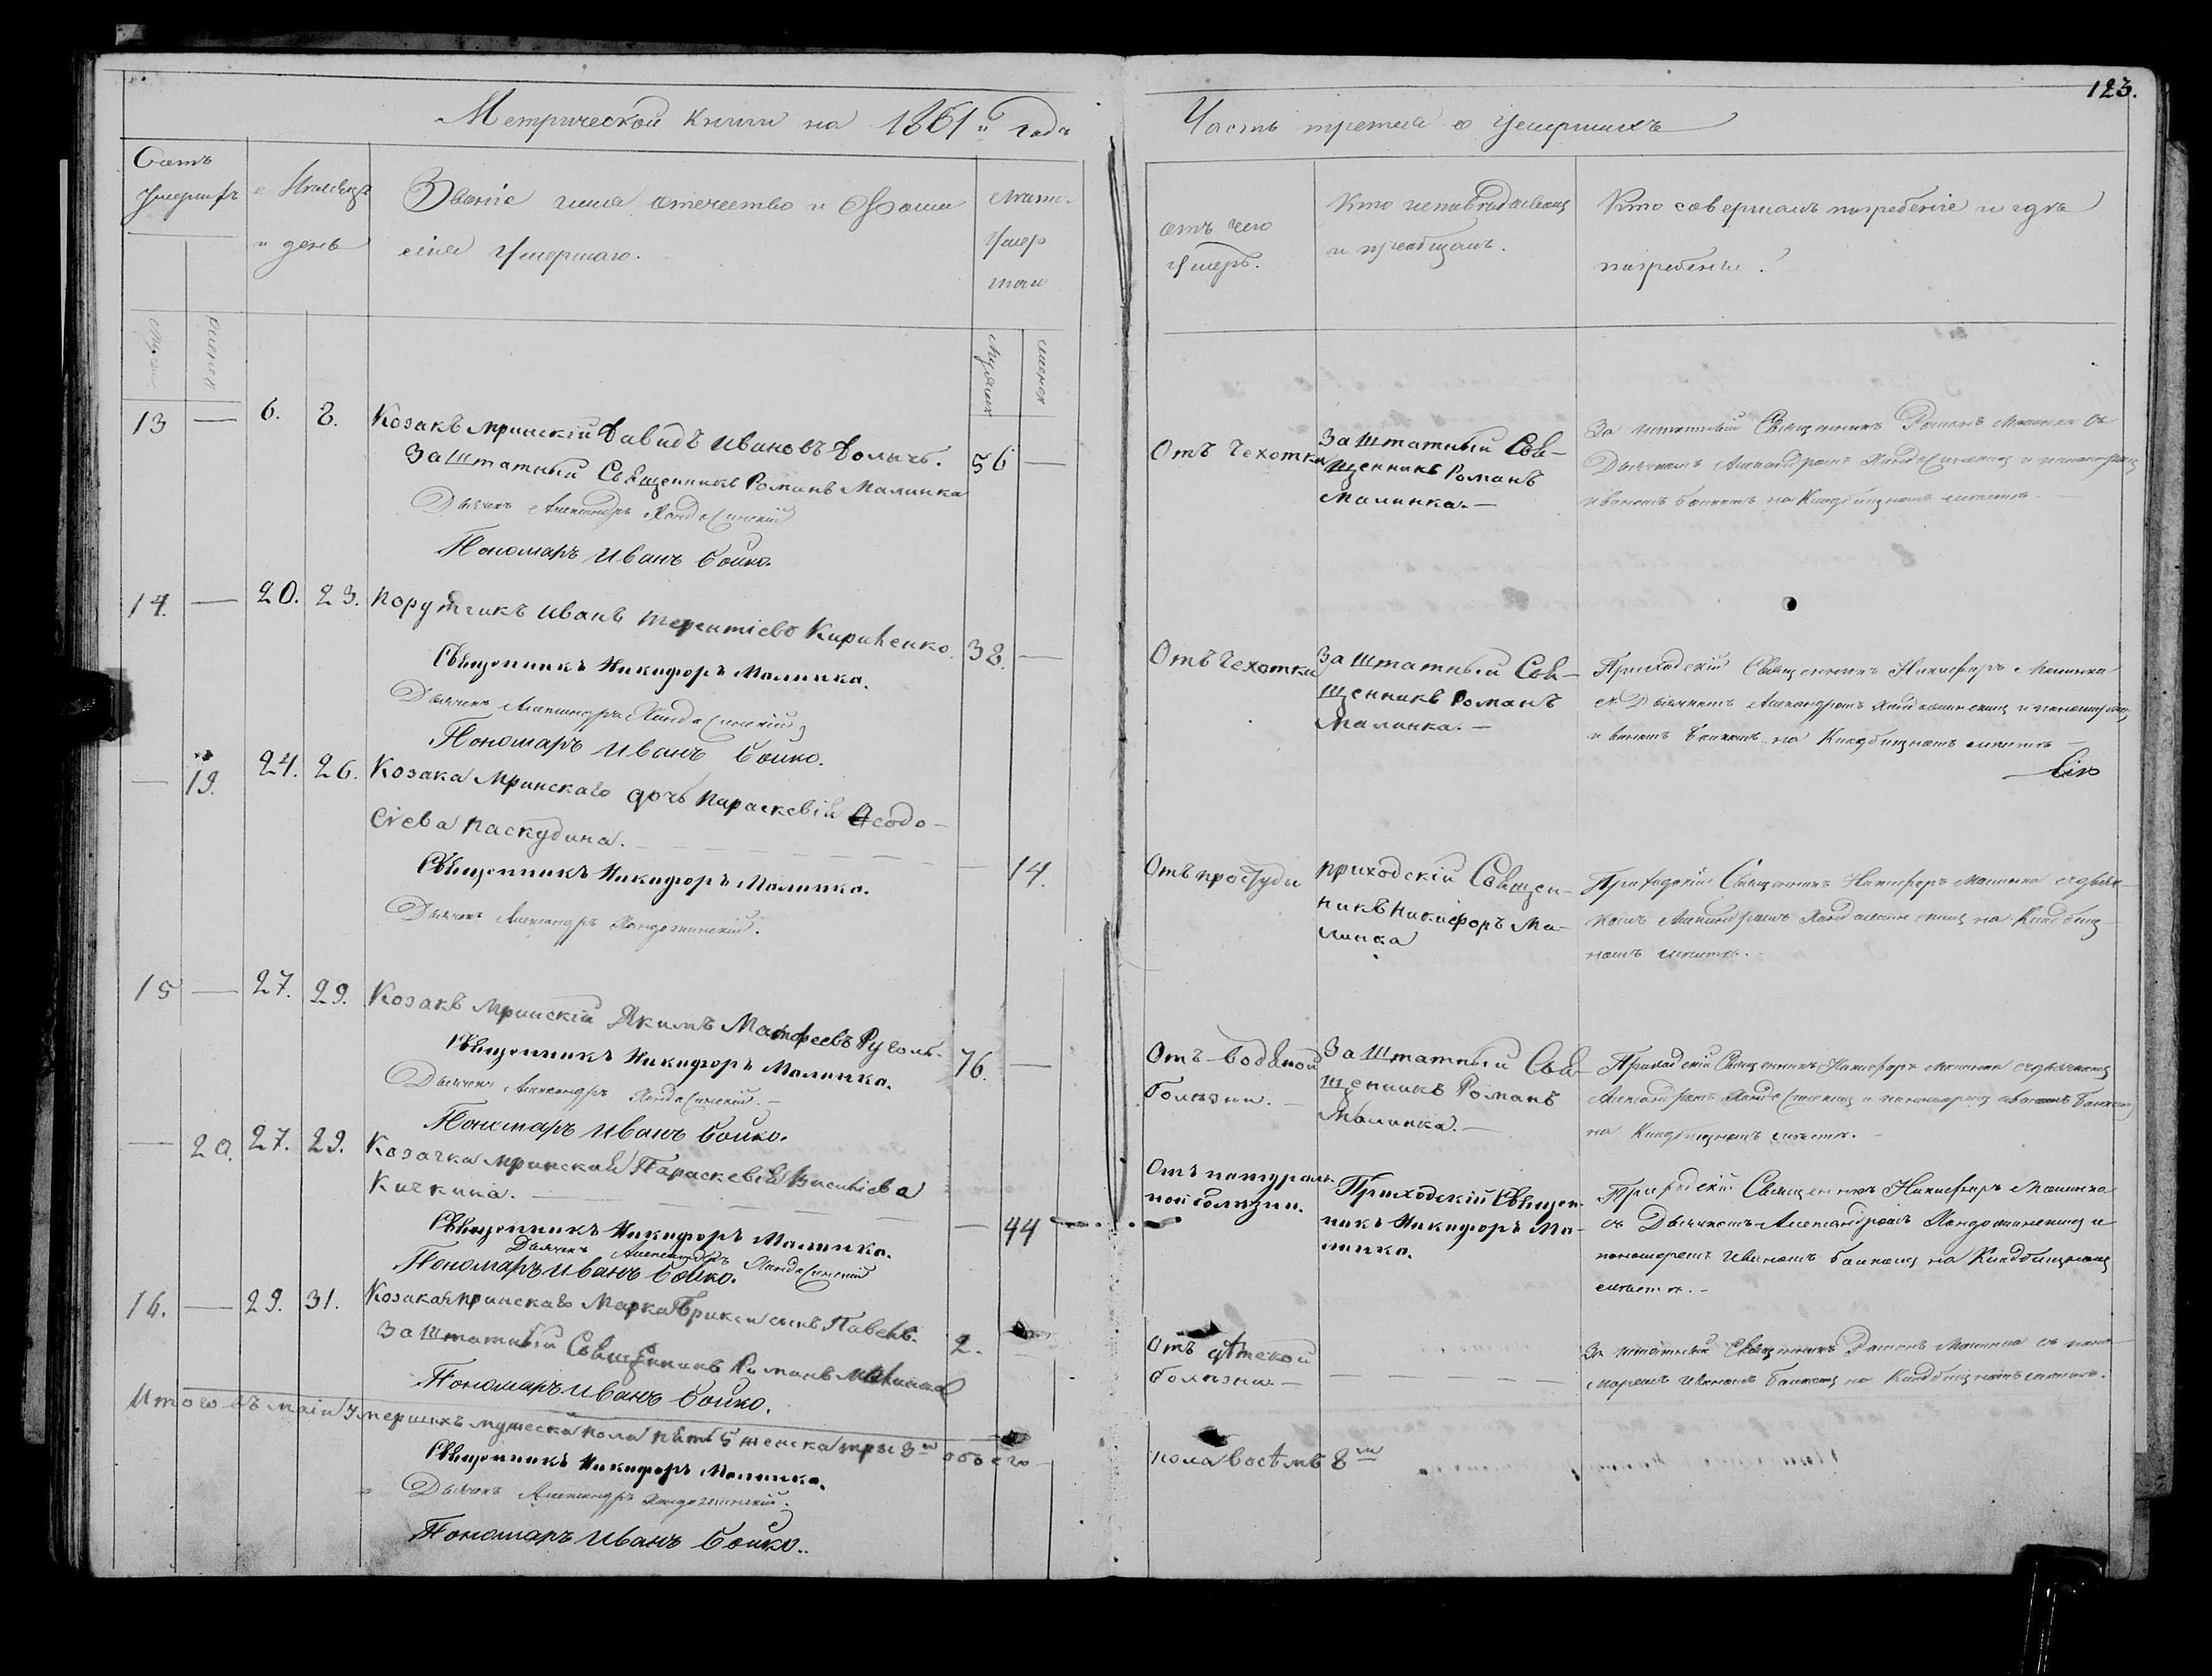 123.
Метрической книги на 1861й года
Часть третья о умершихъ
Счетъ умершихъ
Мужеск
Женск
Месяцъ и день
Званіе имя отечество и Фами
лія Умершаго.
Лета
Умер
шаго
Мужеск
Женск
отъ чего
Умеръ.
Кто исповѣдывалъ
и пріобщалъ.
Кто совершалъ погребеніе и гдѣ
погребены.
13 — 6. 8. Козакъ мринскій Давидъ Ивановъ 56 —
Заштатный Священникъ Романъ Малинка
Дьячекъ Александръ
Пономаръ Иванъ Бойко.
Отъ Чехотки
Заштатный Свя-
щенникъ Романъ
Малинка. —
Заштатный Священникъ Романъ Малинка съ
Дьячкомъ Александромъ и пономаремъ
Иваномъ Бойкомъ на Кладбищномъ месте.
14. — 20. 23. Порутчикъ Иванъ терентіевъ Кириченко. 38. —
Священникъ Никифоръ Малинка.
Дьячекъ Александръ
Пономаръ Иванъ Бойко.
Отъ Чехотки
Заштатный Свя-
щенникъ Романъ
Малинка. —
Приходскій Священникъ Никифоръ Малинка
съ Дьячкомъ Александромъ и пономаремъ
Иваномъ Бойкомъ на Кладбищномъ месте —
— 19. 24. 26. Козака Мринскаго дочь параскевія Ѳеодо-
сіева паскудина. — 14.
Священникъ Никифоръ Малинка.
Дьячекъ Александръ
Отъ простуды
приходскій Священ-
никъ Никифоръ Ма-
линка
Приходскій Священникъ Никифоръ Малинка съ дьяч-
комъ Александромъ на Кладбищ-
номъ месте.
15 — 27. 29. Козакъ Мринскій Якимъ Матфеевъ 76. —
Священникъ Никифоръ Малинка.
Дьячекъ Александръ
Пономаръ Иванъ Бойко.
Отъ водяной
болезни. —
Заштатный Свя-
щенникъ Романъ
Малинка. —
Приходскій Священникъ Никифоръ Малинка съ дьячкомъ
Александромъ и пономаремъ Иваномъ Бойкомъ
на Кладбищномъ месте. —
— 20. 27. 29. Козачка мринская Параскевія
Кичкина. — 44
Священникъ Никифоръ Малинка.
Дьячекъ Александръ
Пономаръ Иванъ Бойко.
Отъ натураль-
ной болезни.
Приходскій Священ-
никъ Никифоръ Ма-
линка.
Приходскій Священникъ Никифоръ Малинка
съ Дьячкомъ Александромъ и
пономаремъ Иваномъ Бойкомъ на Кладбищномъ
месте. —
16. — 29. 31. Козака мринскаго Марка сынъ Павелъ. 2. —
Заштатный Священникъ Романъ Малинка
Пономаръ Иванъ Бойко.
Отъ дѣтской
болѣзни. —
Заштатный Священникъ Романъ Малинка съ поно-
маремъ Иваномъ Бойкомъ на Кладбищномъ месте.
Итого въ маіи Умершихъ мужеска пола пять 5 женска три 3 обоего
пола восѣмъ 8
Священникъ Никифоръ Малинка.
Дьячекъ Александръ
Пономаръ Иванъ Бойко.